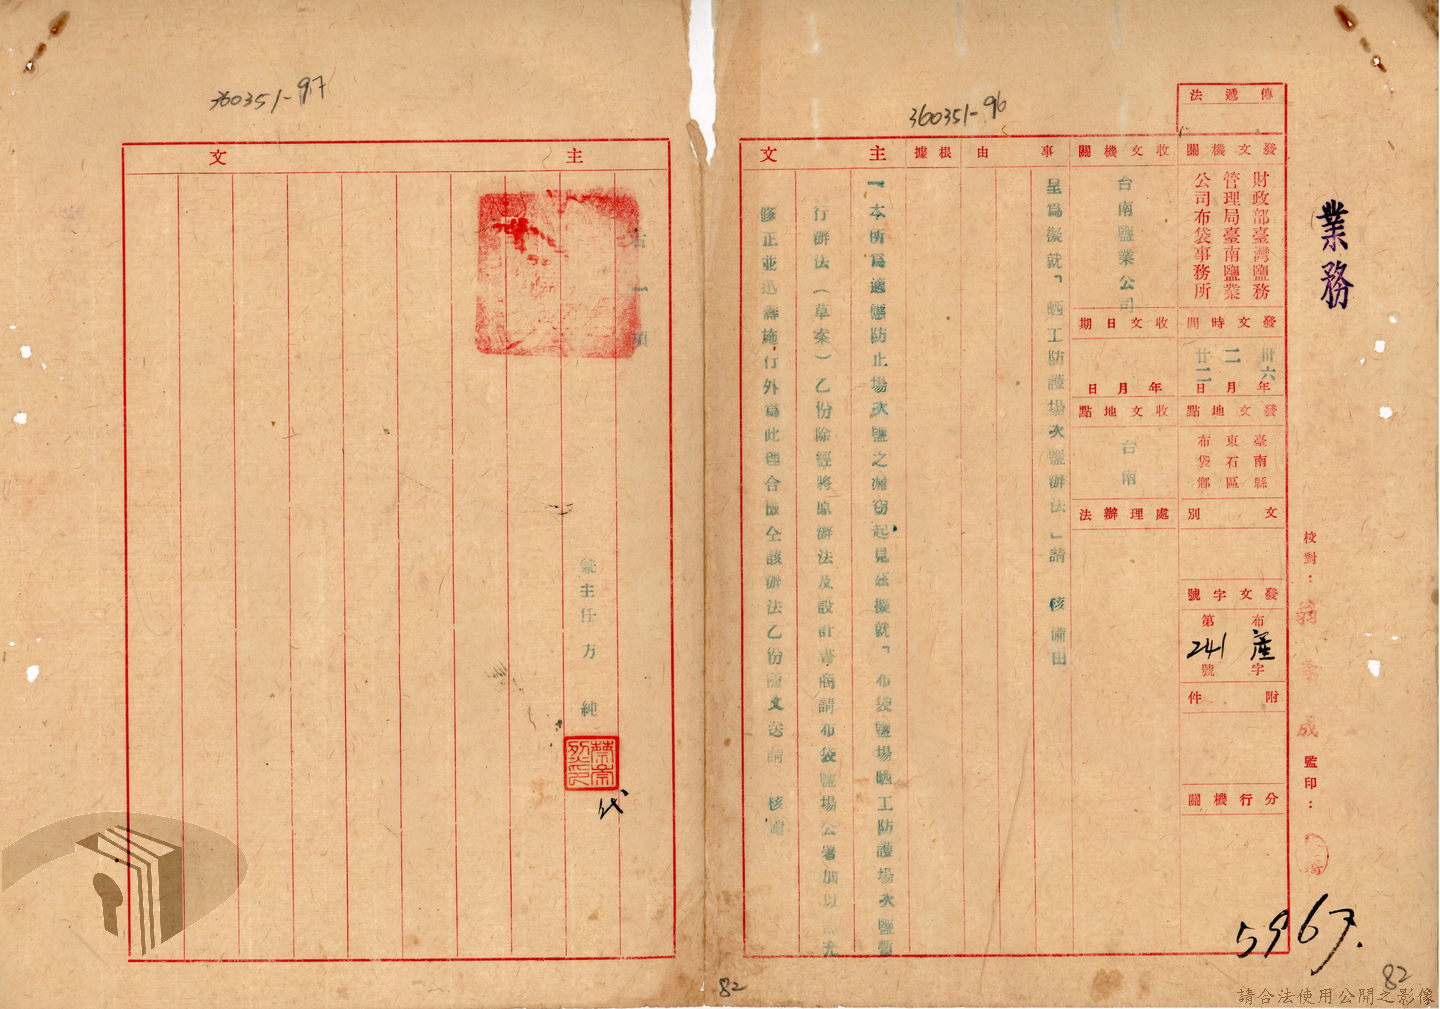 業務
校對：
監印：
5967.
傳遞法
發文機關
財政部臺灣鹽務
管理局臺南鹽業
公司布袋事務所
發文時間
卅六年
二月
廿二日
發文地點
臺南縣
東石區
布袋鄉
文別
發文字號
布產字
第241號
附件
分行機關
收文機關
台南鹽業公司
收文日期
年月日
收文地點
台南
處理辦法
事由
呈為擬就「晒工防護場次鹽辦法」請 核備由
根據
主文
一本所為適應防止場次鹽之漏窃起見茲擬就「布袋鹽場晒工防護場次鹽暫
行辦法（草案）乙份除經將原辦法及設計書商請布袋鹽場公署加以
修正並迅壽施行外為此理合檢仝該辦法乙份隨文送請 核備
360351-96
主文
右一項
兼主任方 純
代
360351-97
82
82
請合法使用公開之影像